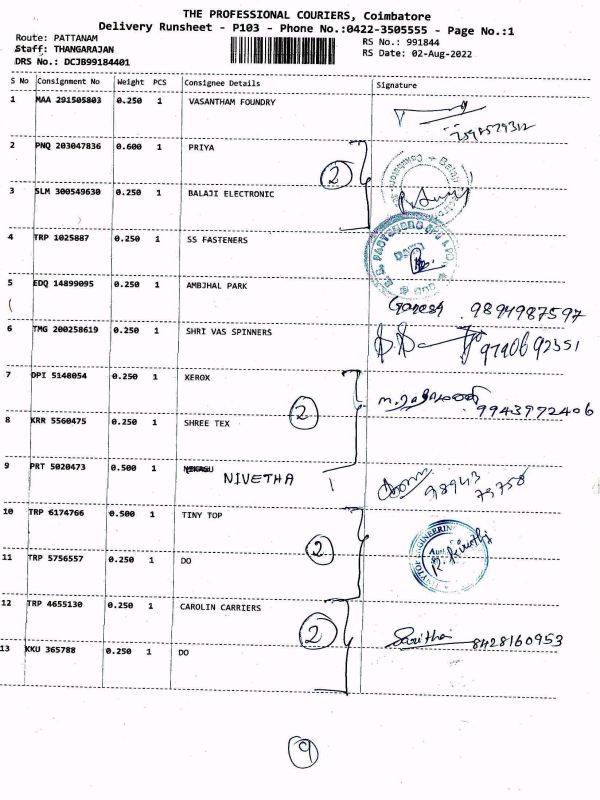 THE PROFESSIONAL COURIERS, Coimbatore
Delivery Runsheet - P103 - Phone No.:0422-3505555 - Page No.:1
Route: PATTANAM
RS No.: 991844
Staff: THANGARAJAN
RS Date: 02-Aug-2022
DRS No.: DCJB99184401
S No Consignment No Weight PCS Consignee Details Signature
1 MAA 291505803 0.250 1 VASANTHAM FOUNDRY
2 PNQ 203047836 0.600 1 PRIYA
2
3 SLM 300549630 0.250 1 BALAJI ELECTRONIC
4 TRP 1025887 0.250 1 SS FASTENERS
5 EDQ 14899095 0.250 1 AMBJHAL PARK
Ganesh 9894987597
6 TMG 200258619 0.250 1 SHRI VAS SPINNERS
7 DPI 5148054 0.250 1 XEROX
9943972406
2
8 KRR 5560475 0.250 1 SHREE TEX
9 PRT 5020473 0.500 1 NIVETHA 1
98943
79758
10 TRP 6174766 0.500 1 TINY TOP
2
11 TRP 5756557 0.250 1 DO
12 TRP 4655130 0.250 1 CAROLIN CARRIERS
2
Saritha 8428160953
13 KKU 365788 0.250 1 DO
9